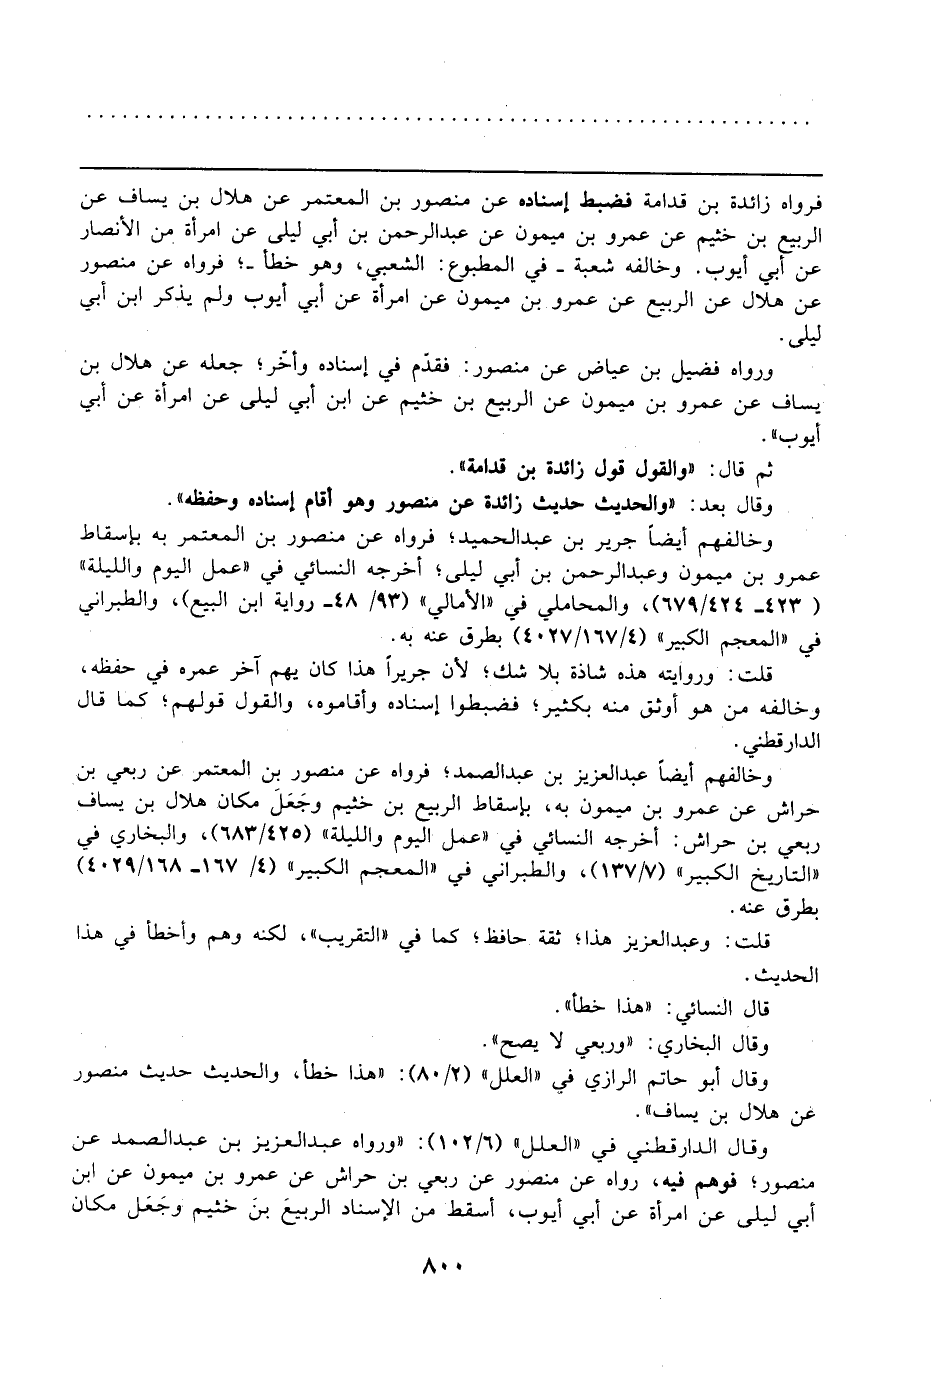 فرواه زائدة بن قدامة فضبط إسناده عن منصور بن المعتمر عن هلال بن يساف عن
الربيع بن خثيم عن عمرو بن ميمون عن عبدالرحمن بن أبي ليلى عن امرأة من الأنصار
عن أبي أيوب. وخالفه شعبة ـ في المطبوع: الشعبي، وهو خطأ ـ؛ فرواه عن منصور
عن هلال عن الربيع عن عمرو بن ميمون عن امرأة عن أبي أيوب ولم يذكر ابن أبي
ليلى.
ورواه فضيل بن عياض عن منصور: فقدّم في إسناده وأخّر؛ جعله عن هلال بن
يساف عن عمرو بن ميمون عن الربيع بن خثيم عن ابن أبي ليلى عن امرأة عن أبي
أيوب».
ثم قال: «والقول قول زائدة بن قدامة».
وقال بعد: «والحديث حديث زائدة عن منصور وهو أقام إسناده وحفظه».
وخالفهم أيضاً جرير بن عبدالحميد؛ فرواه عن منصور بن المعتمر به بإسقاط
عمرو بن ميمون وعبدالرحمن بن أبي ليلى؛ أخرجه النسائي في «عمل اليوم والليلة»
( ٤٢٣ـ ٦٧٩/٤٢٤)، والمحاملي في «الأمالي» (٩٣/ ٤٨ـ رواية ابن البيع)، والطبراني
في «المعجم الكبير» (٤٠٢٧/١٦٧/٤) بطرق عنه به.
قلت: وروايته هذه شاذة بلا شك؛ لأن جريراً هذا كان يهم آخر عمره في حفظه،
وخالفه من هو أوثق منه بكثير؛ فضبطوا إسناده وأقاموه، والقول قولهم؛ كما قال
الدارقطني.
وخالفهم أيضاً عبدالعزيز بن عبدالصمد؛ فرواه عن منصور بن المعتمر عن ربعي بن
حراش عن عمرو بن ميمون به، بإسقاط الربيع بن خثيم وجَعَلَ مكان هلال بن يساف
ربعي بن حراش: أخرجه النسائي في «عمل اليوم والليلة» (٦٨٣/٤٢٥)، والبخاري في
«التاريخ الكبير» (١٣٧/٧)، والطبراني في «المعجم الكبير» (٤/ ١٦٧ـ ٤٠٢٩/١٦٨)
بطرق عنه.
قلت: وعبدالعزيز هذا؛ ثقة حافظ؛ كما في «التقريب»، لكنه وهم وأخطأ في هذا
الحديث.
قال النسائي: «هذا خطأ».
وقال البخاري: «وربعي لا يصح».
وقال أبو حاتم الرازي في «العلل» (٨٠/٢): «هذا خطأ، والحديث حديث منصور
عن هلال بن يساف».
وقال الدارقطني في «العلل» (١٠٢/٦): «ورواه عبدالعزيز بن عبدالصمد عن
منصور؛ فوهم فيه، رواه عن منصور عن ربعي بن حراش عن عمرو بن ميمون عن ابن
أبي ليلى عن امرأة عن أبي أيوب، أسقط من الإسناد الربيعَ بنَ خثيم وجَعَل مكان
٨٠٠